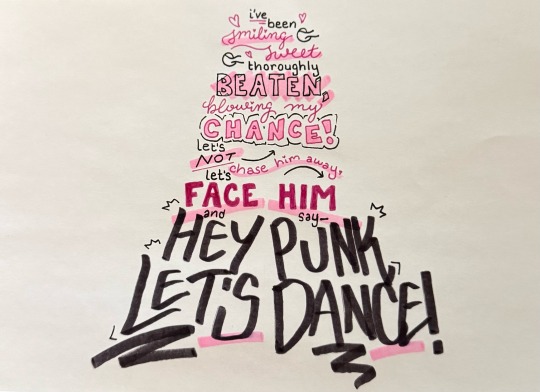 i've been
smiling &
sweet
& thoroughly
BEATEN,
blowing my
CHANCE!
let's
NOT chase him away,
let's
FACE HIM
and say—
HEY PUNK,
LET'S DANCE!